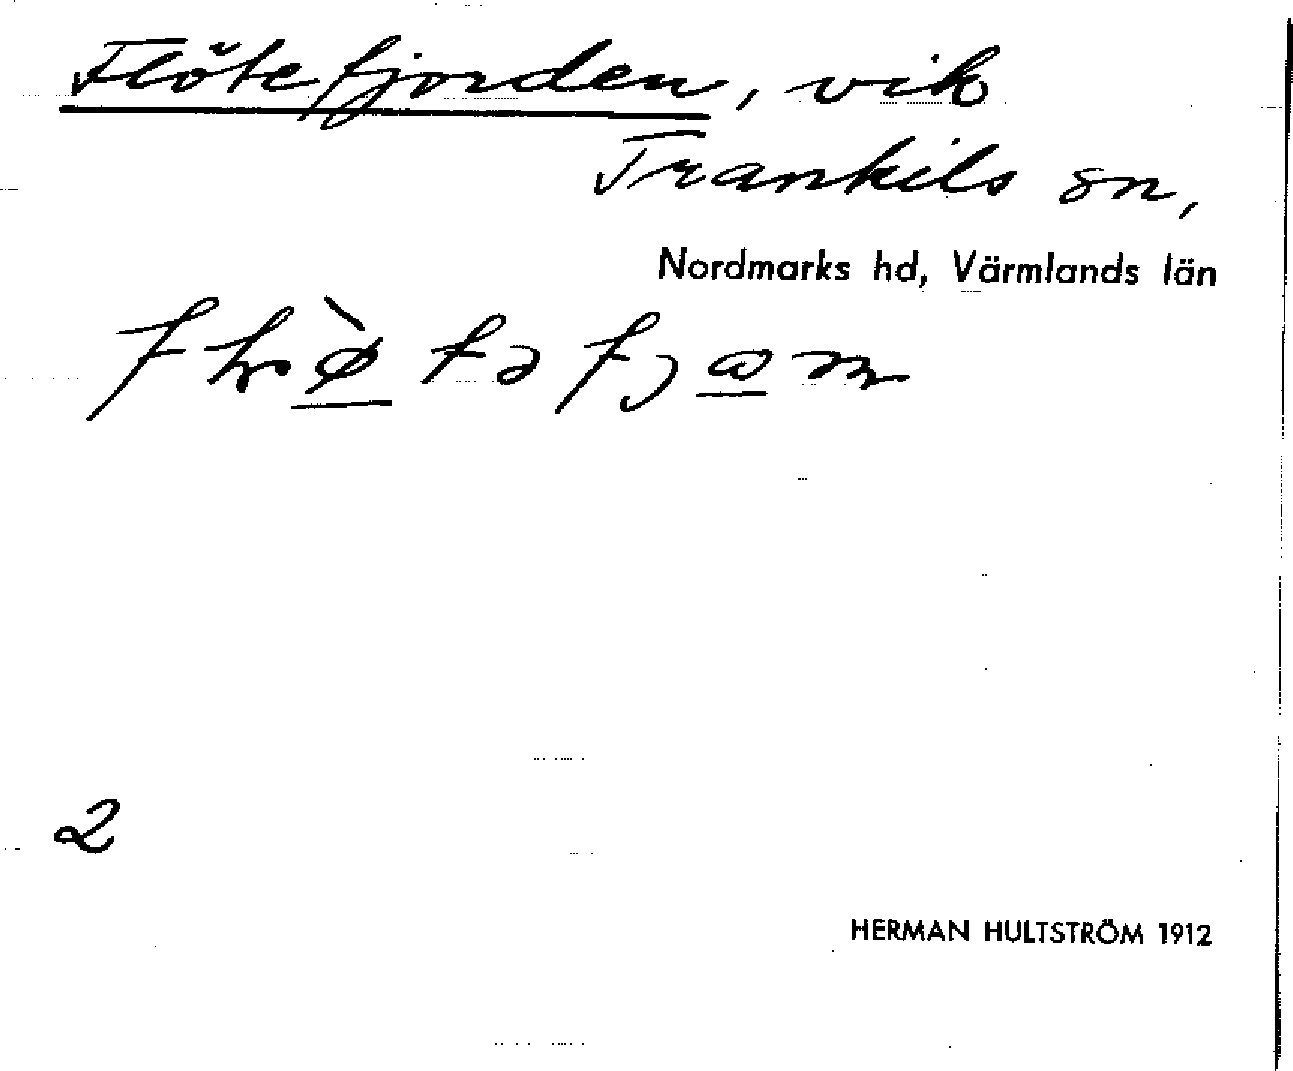 Flötefjorden, vik
Trankils sn,
Nordmarks hd, Värmlands län
2
HERMAN HULTSTRÖM 1912